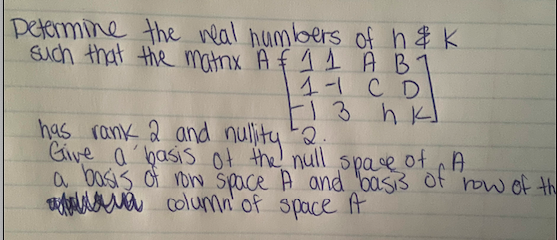 Determine the real numbers of h & K
such that the matrix A = [1 1 A B
1 -1 C D
-1 3 h K]
has rank 2 and nullity 2.
Give a basis of the null space of A
a basis of row space A and basis of row of th
column of space A